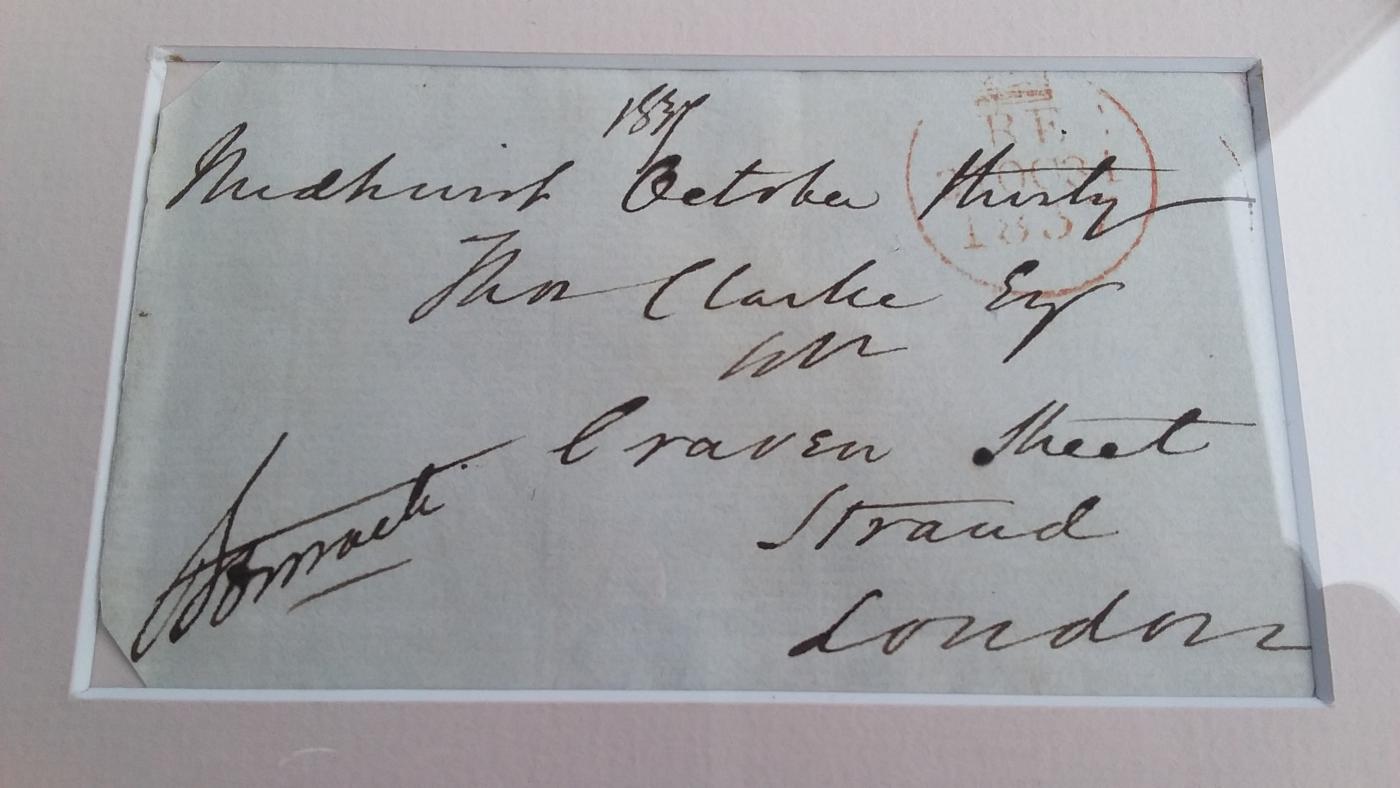 1837
Midhurst October Thirty
Thos Clarke Esq
Craven Street
Strand
London